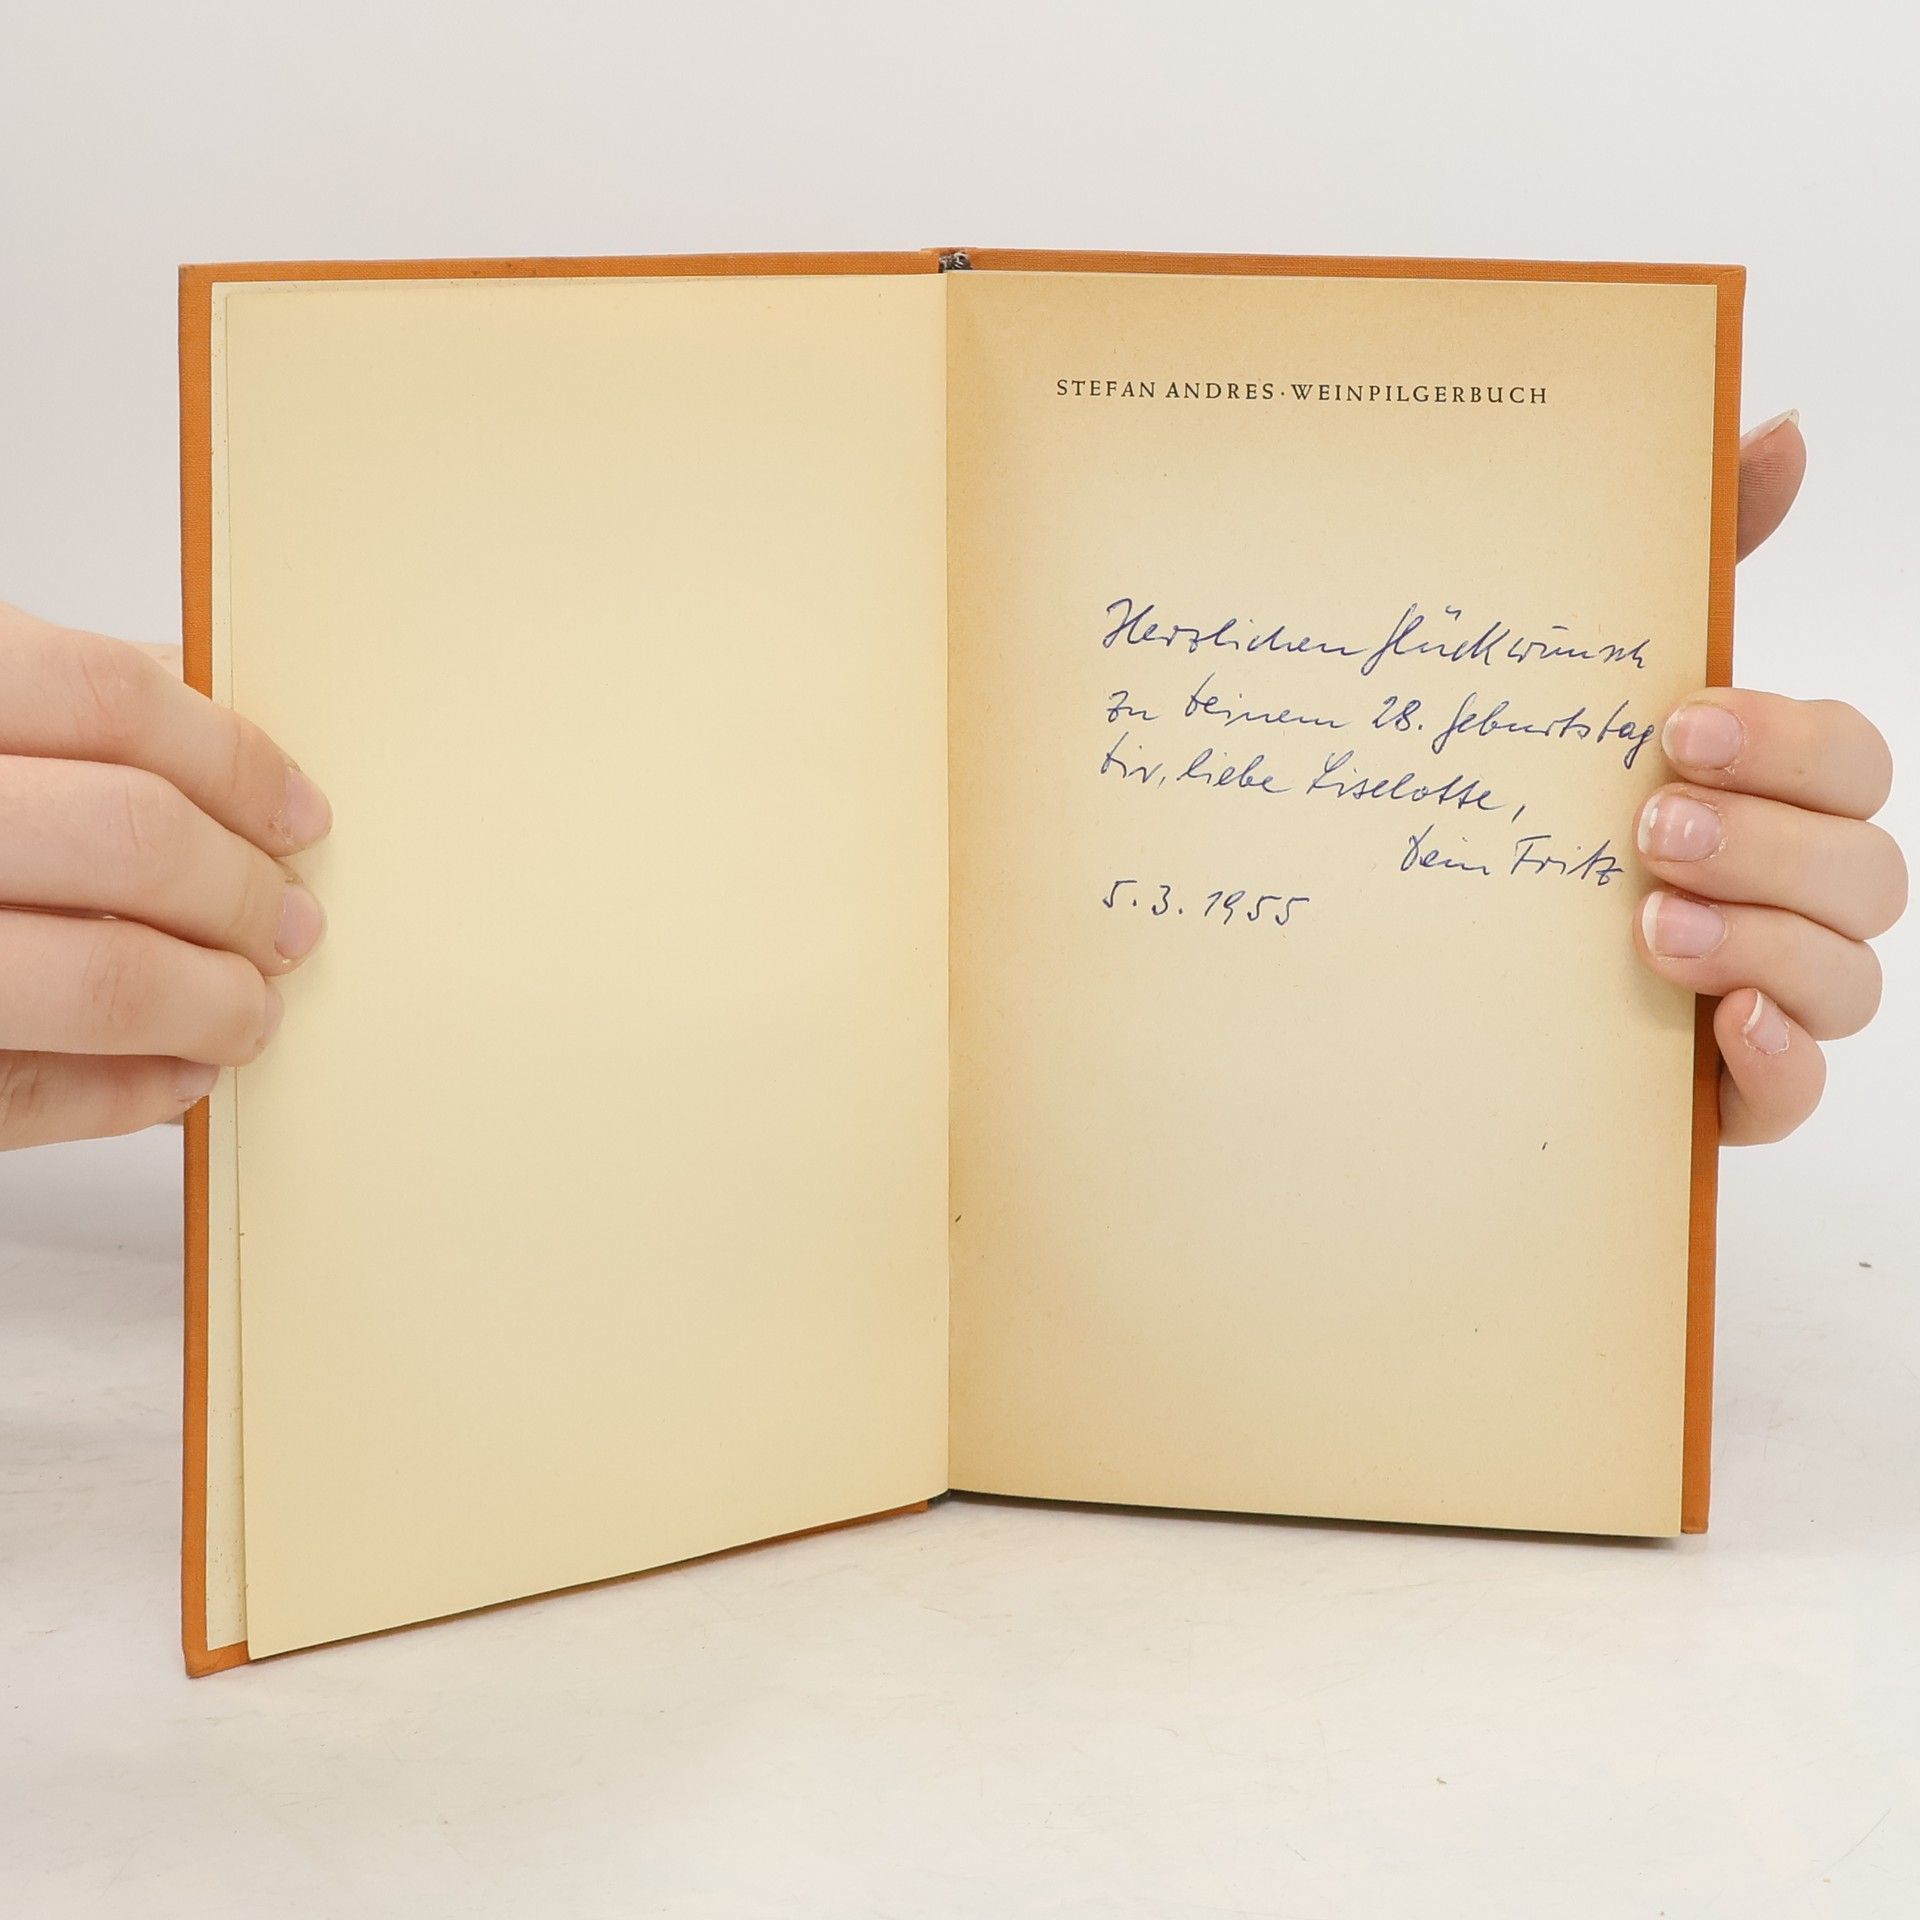 STEFAN ANDRES · WEINPILGERBUCH
Herzlichen Glückwunsch
zu Deinem 28. Geburtstag
Dir, liebe Liselotte,
Dein Fritz
5. 3. 1955